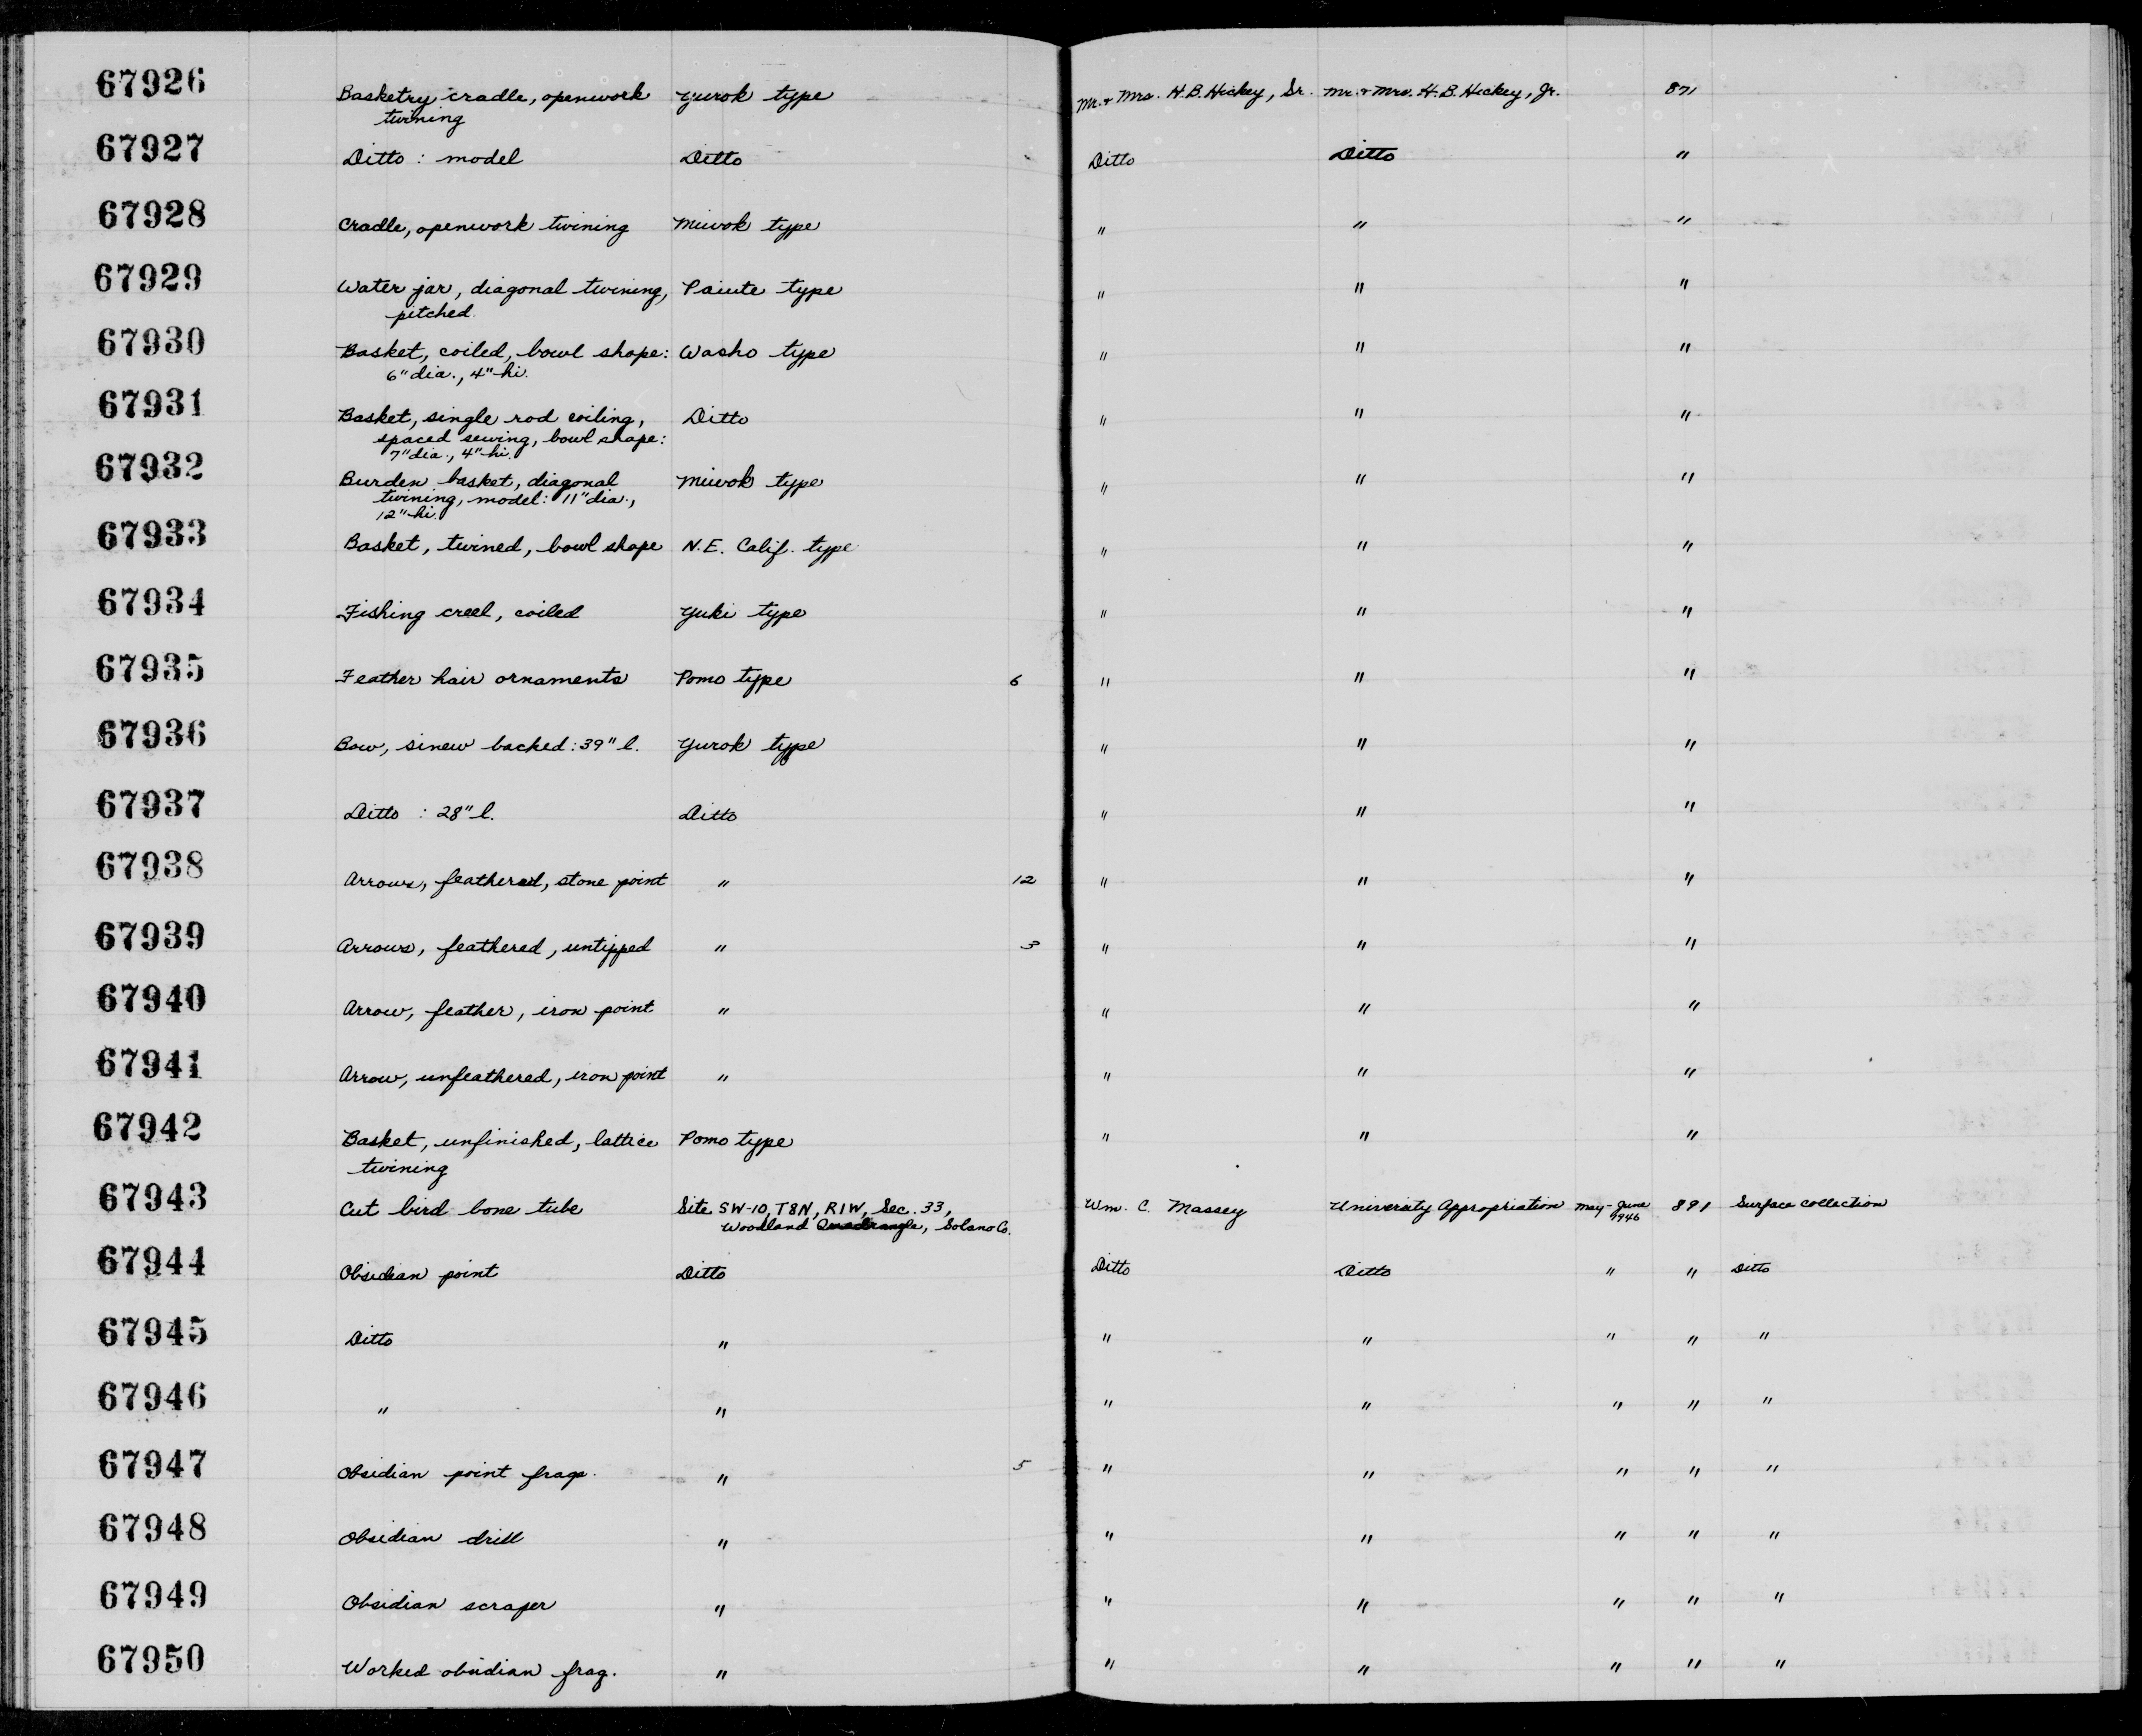 67926 Basketry cradle, openwork Yurok type Mr. & Mrs. H.B. Hickey, Sr. Mr. & Mrs. H.B. Hickey, Jr. 871
twining
67927 Ditto : model Ditto Ditto Ditto "
67928 Cradle, openwork twining Miwok type " " "
67929 Water jar, diagonal twining, Paiute type " " "
pitched.
67930 Basket, coiled, bowl shape: Washo type " " "
6" dia., 4" hi.
67931 Basket, single rod coiling, Ditto " " "
spaced sewing, bowl shape:
7" dia., 4" hi.
67932 Burden basket, diagonal Miwok type " " "
twining, model: 11" dia.,
12" hi.
67933 Basket, twined, bowl shape N.E. Calif. type " " "
67934 Fishing creel, coiled Yuki type " " "
67935 Feather hair ornaments Pomo type 6 " " "
67936 Bow, sinew backed: 39" l. Yurok type " " "
67937 Ditto : 28" l. Ditto " " "
67938 Arrows, feathered, stone point " 12 " " "
67939 Arrows, feathered, untipped " 3 " " "
67940 Arrow, feather, iron point " " " "
67941 Arrow, unfeathered, iron point " " " "
67942 Basket, unfinished, lattice Pomo type " " "
twining
67943 Cut bird bone tube Site SW-10, T8N, R1W, Sec. 33, Wm. C. Massey University Appropriation May-June 891 Surface collection
Woodland Quadrangle, Solano Co. 1946
67944 Obsidian point Ditto Ditto Ditto " " Ditto
67945 Ditto " " " " " "
67946 " " " " " " "
67947 Obsidian point frags. " 5 " " " " "
67948 Obsidian drill " " " " " "
67949 Obsidian scraper " " " " " "
67950 Worked obsidian frag. " " " " " "